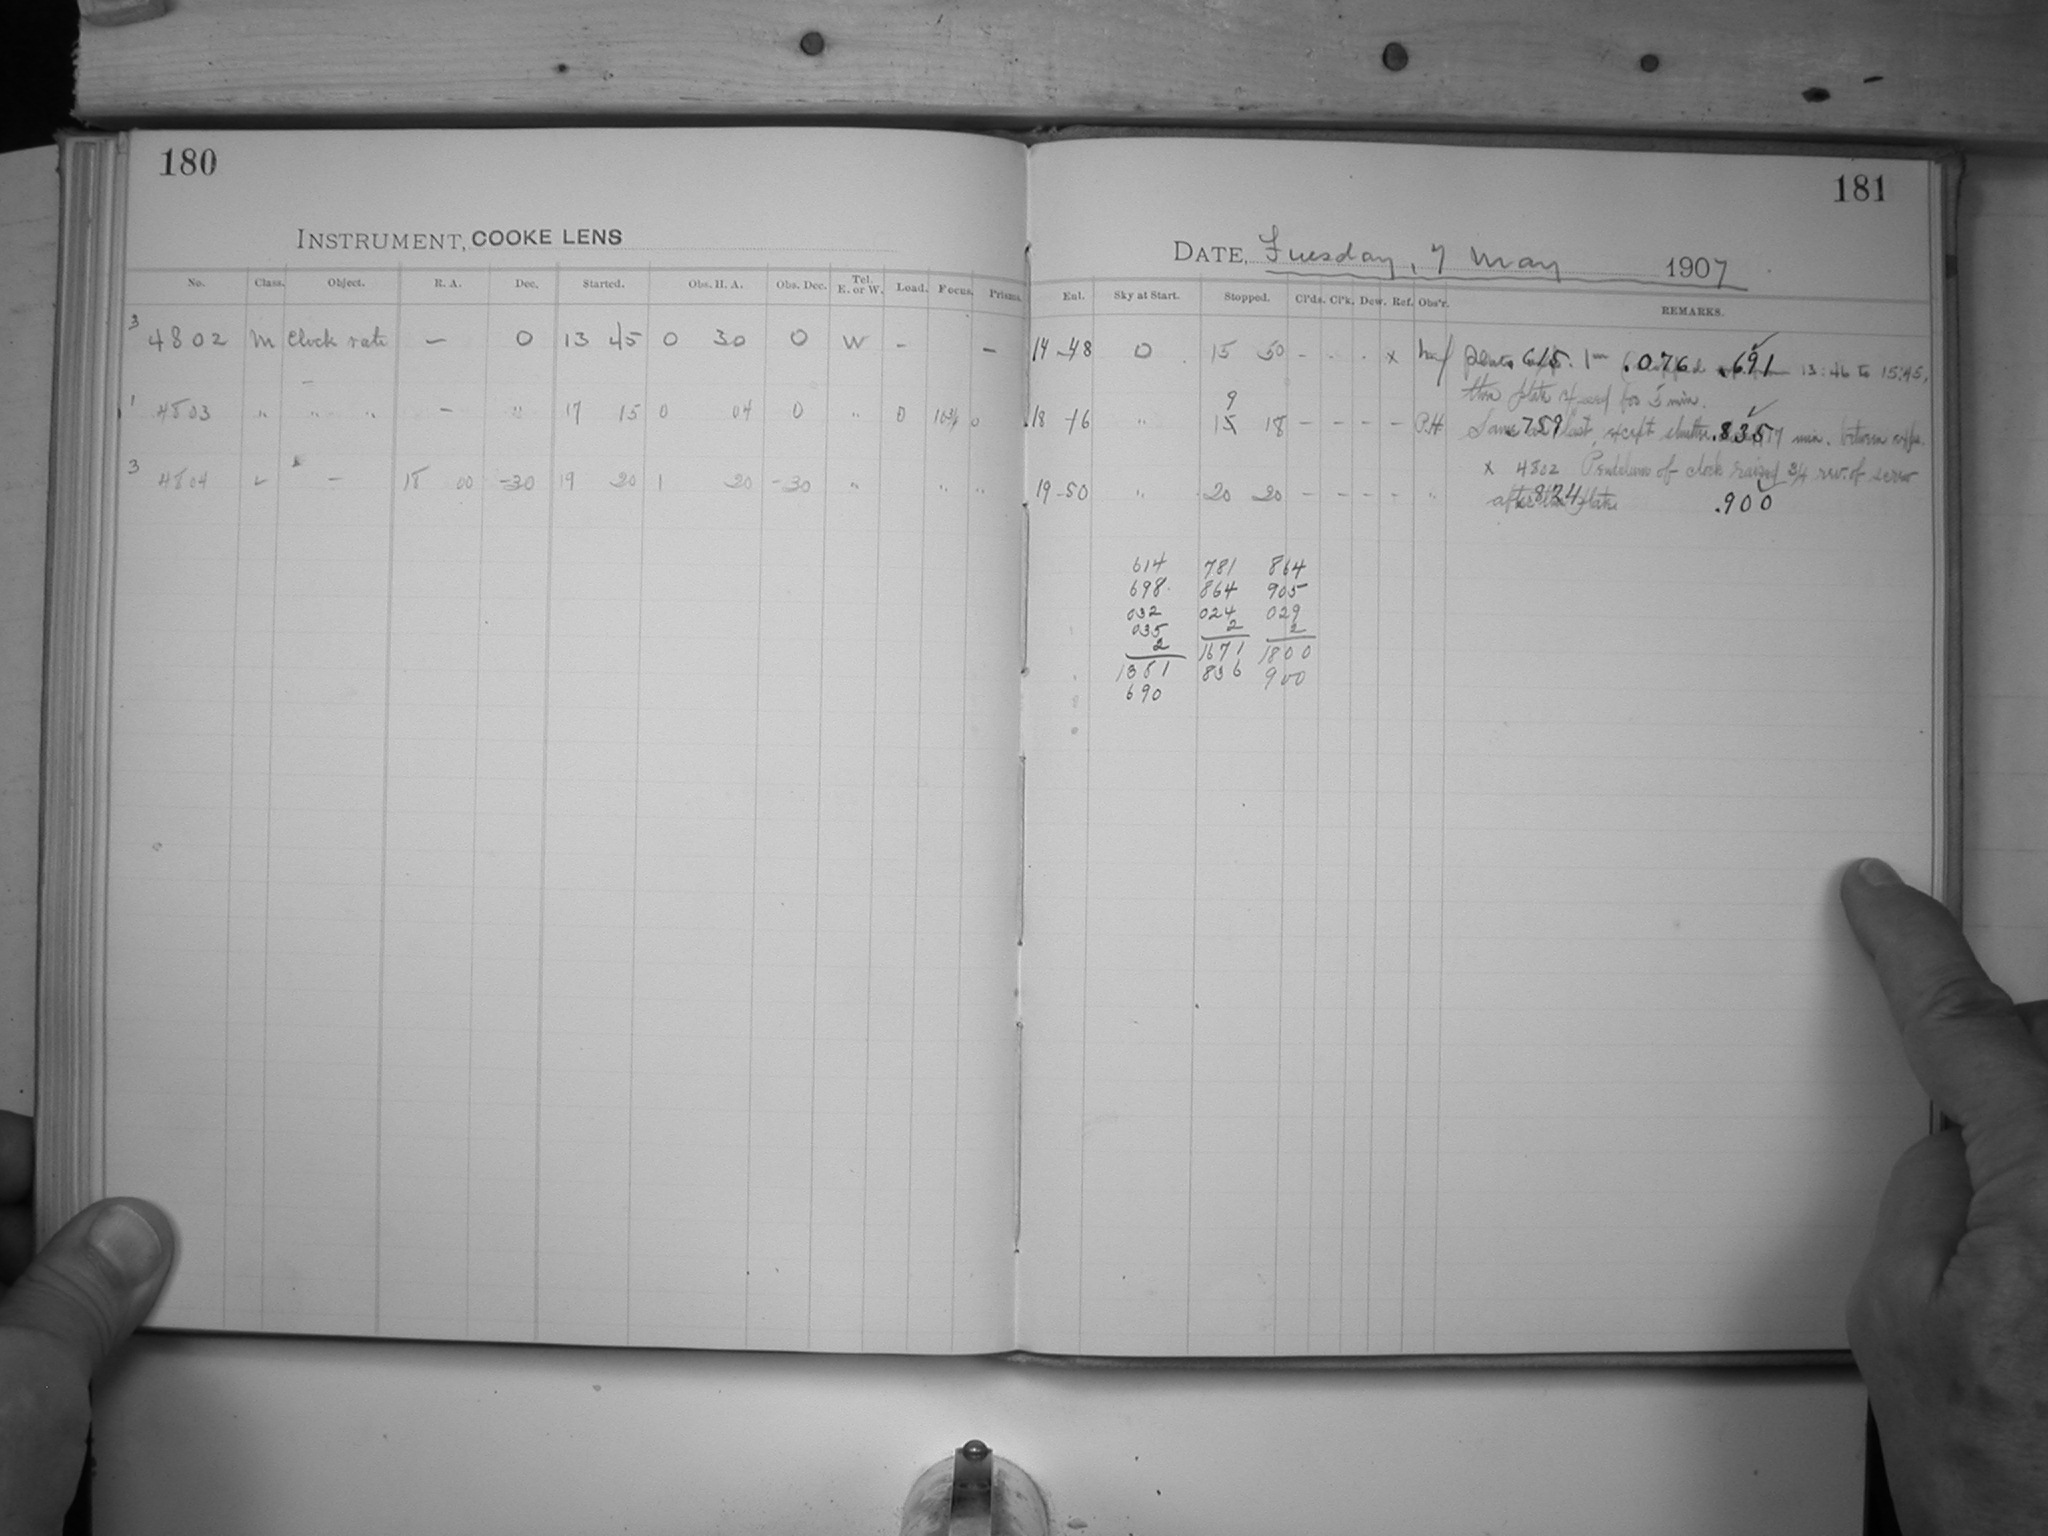 180
INSTRUMENT, COOKE LENS
No. Class. Object. R. A. Dec. Started. Obs. H. A. Obs. Dec. Tel. E. or W. Load. Focus. Prisms.
3 4802 M Clock rate — 0 13 45 0 30 0 W - —
1 4803 " " " — " 17 15 0 04 0 " 0 10 3/4 0
3 4804 — 18 00 -30 19 20 1 20 -30 " " "
181
DATE, Tuesday, 7 May 1907
Ent. Sky at Start. Stopped. Cl'ds. Cl'k. Dew. Ref. Obs'r. REMARKS.
14-48 0 15 50 - . . x .615 1m .076 .691 13:46 to 15:45,
then plate exposed for 5 min.
9
18-16 " 15 18 - - - - P.H. Same .759 last, except shutter .835 17 min. between exps.
x 4802 Pendulum of clock raised 3/4 rev. of screw
19-50 " 20 20 - - - - " after .824 plate .900
614 781 864
698 864 905
032 024 029
035 2 2
2 1671 1800
1381 836 900
690